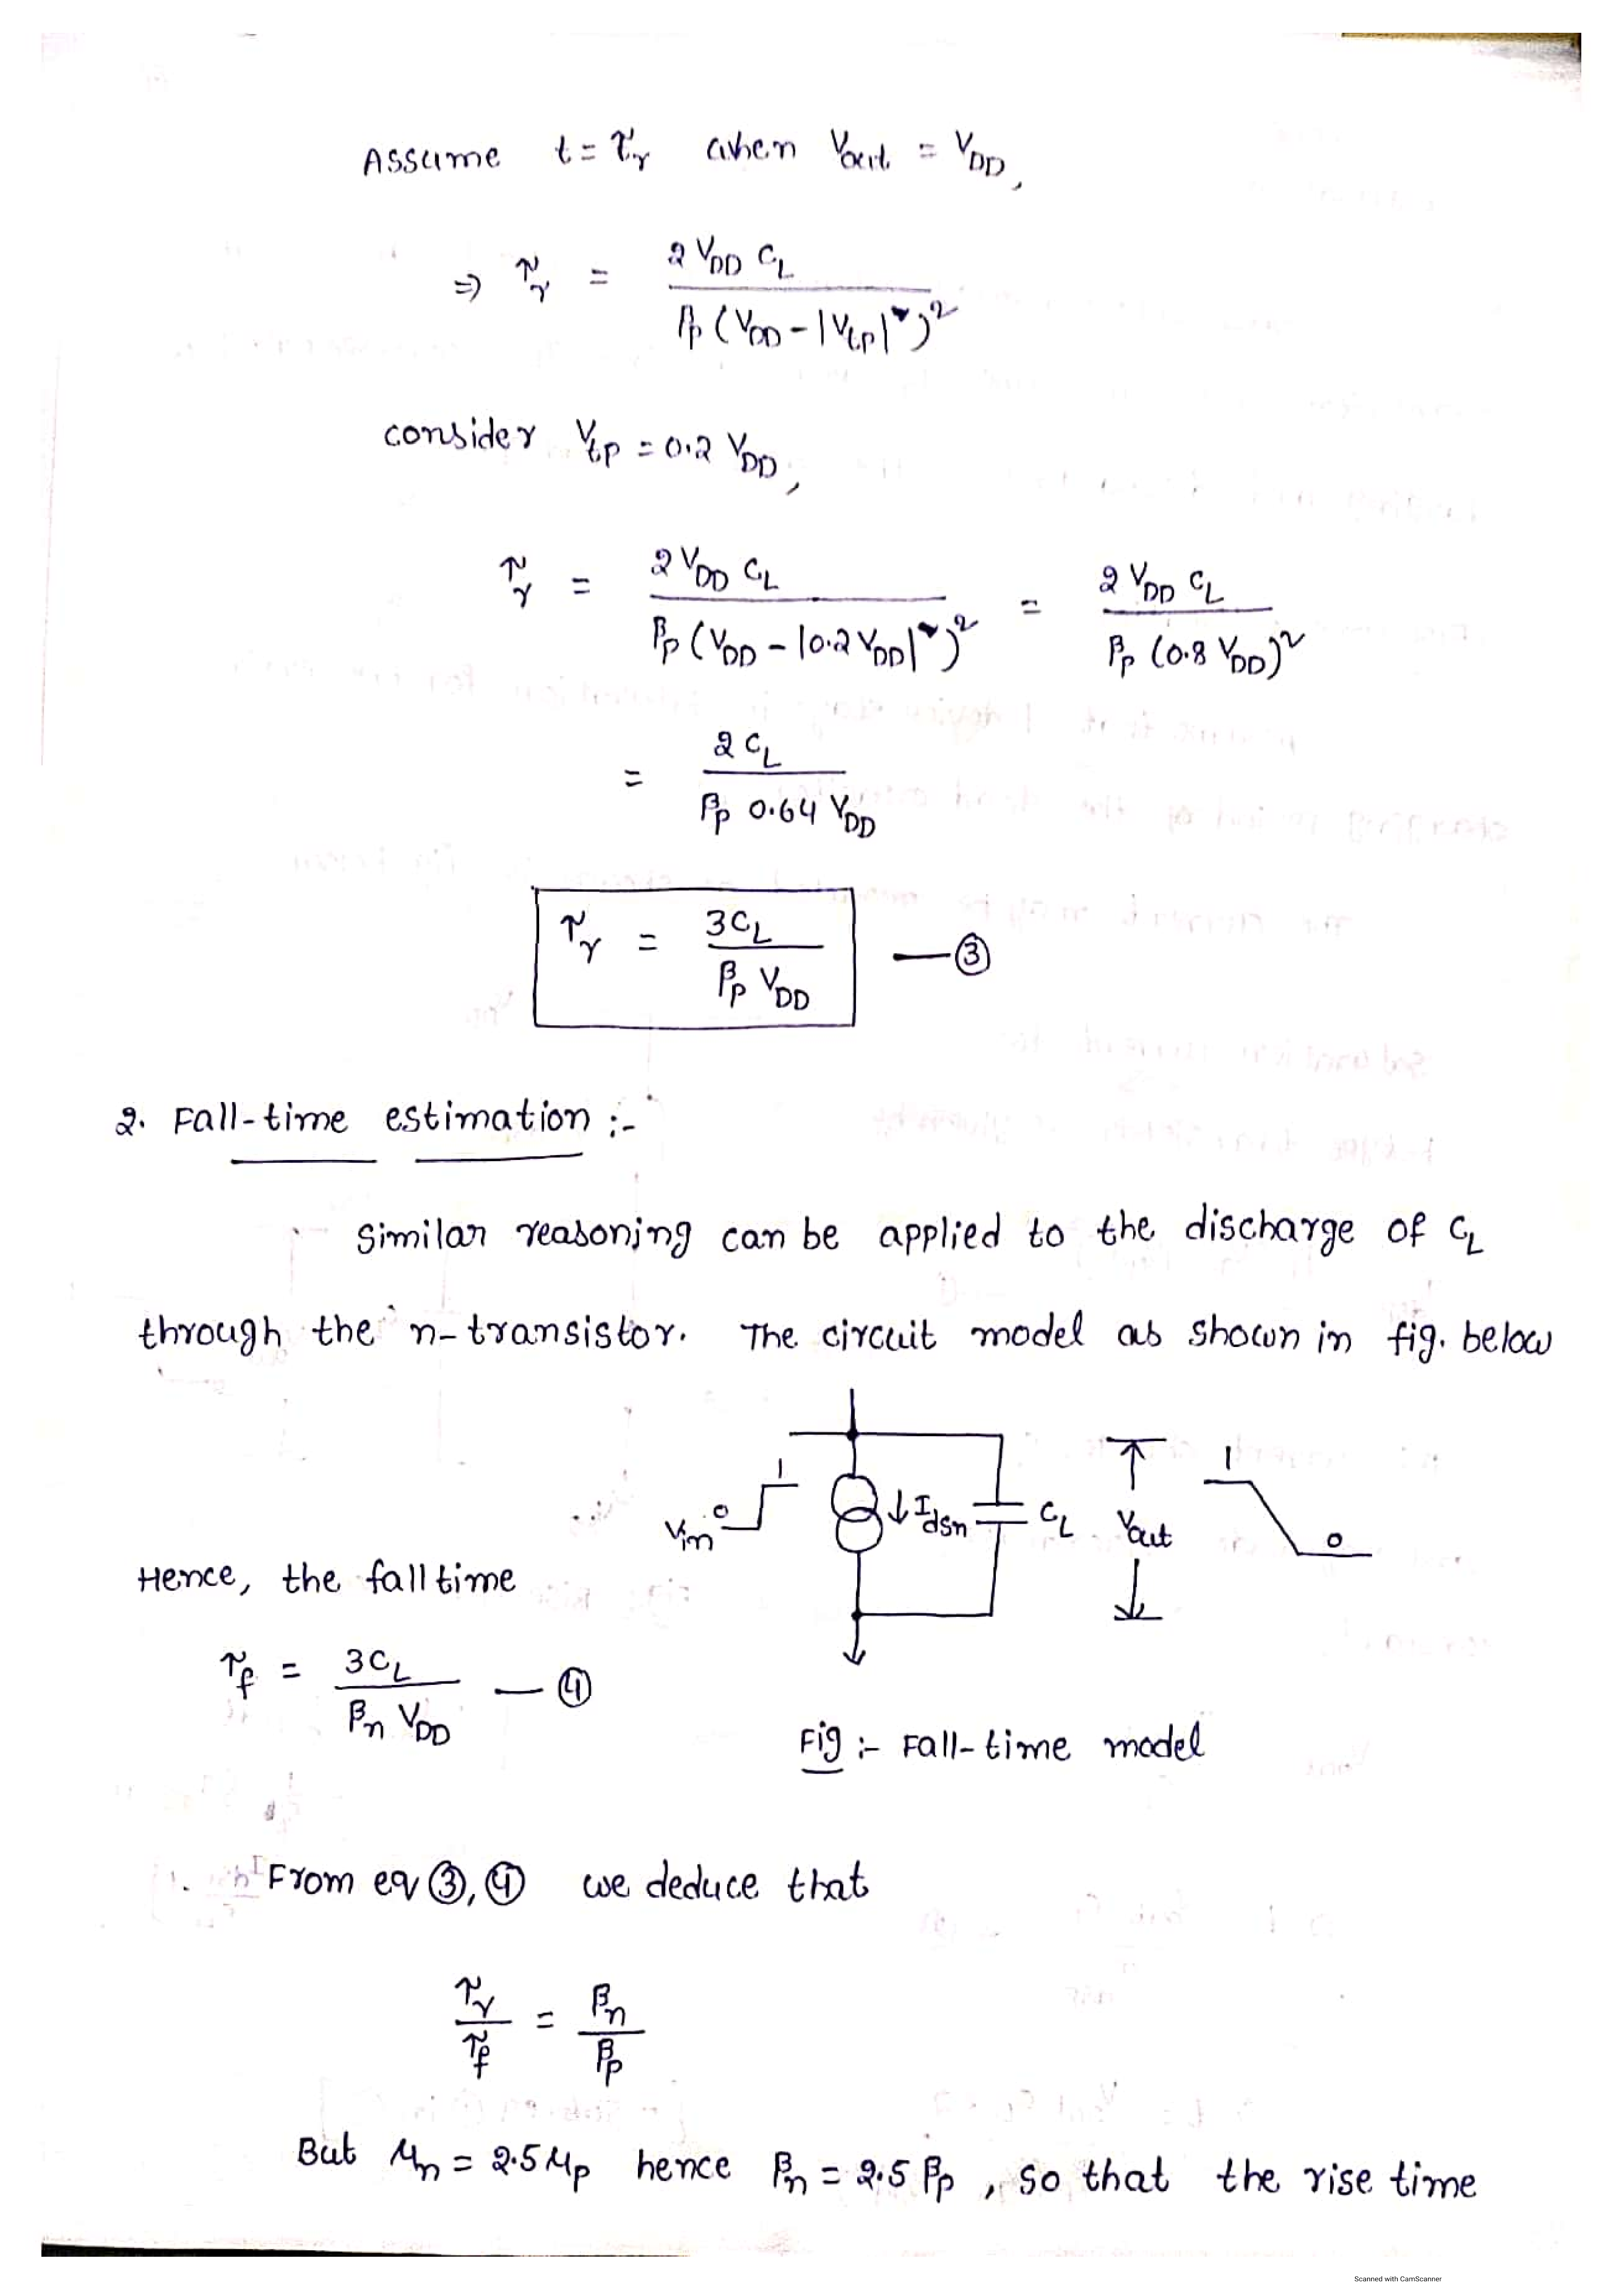 Assume t = τr when Vout = VDD,
⇒ τr = 2 VDD CL / βp (VDD - |Vtp|)²
consider Vtp = 0.2 VDD,
τr = 2 VDD CL / βp (VDD - |0.2 VDD|)² = 2 VDD CL / βp (0.8 VDD)²
= 2 CL / βp 0.64 VDD
τr = 3CL / βp VDD — ③
2. Fall-time estimation :-
Similar reasoning can be applied to the discharge of CL
through the n-transistor. The circuit model as shown in fig. below
Vin 0 1 ↓Idsn CL Vout 1 0
Hence, the fall time
τf = 3CL / βn VDD — ④
Fig :- Fall-time model
From eq ③, ④ we deduce that
τr / τf = βn / βp
But μn = 2.5 μp hence βn = 2.5 βp , so that the rise time
Scanned with CamScanner